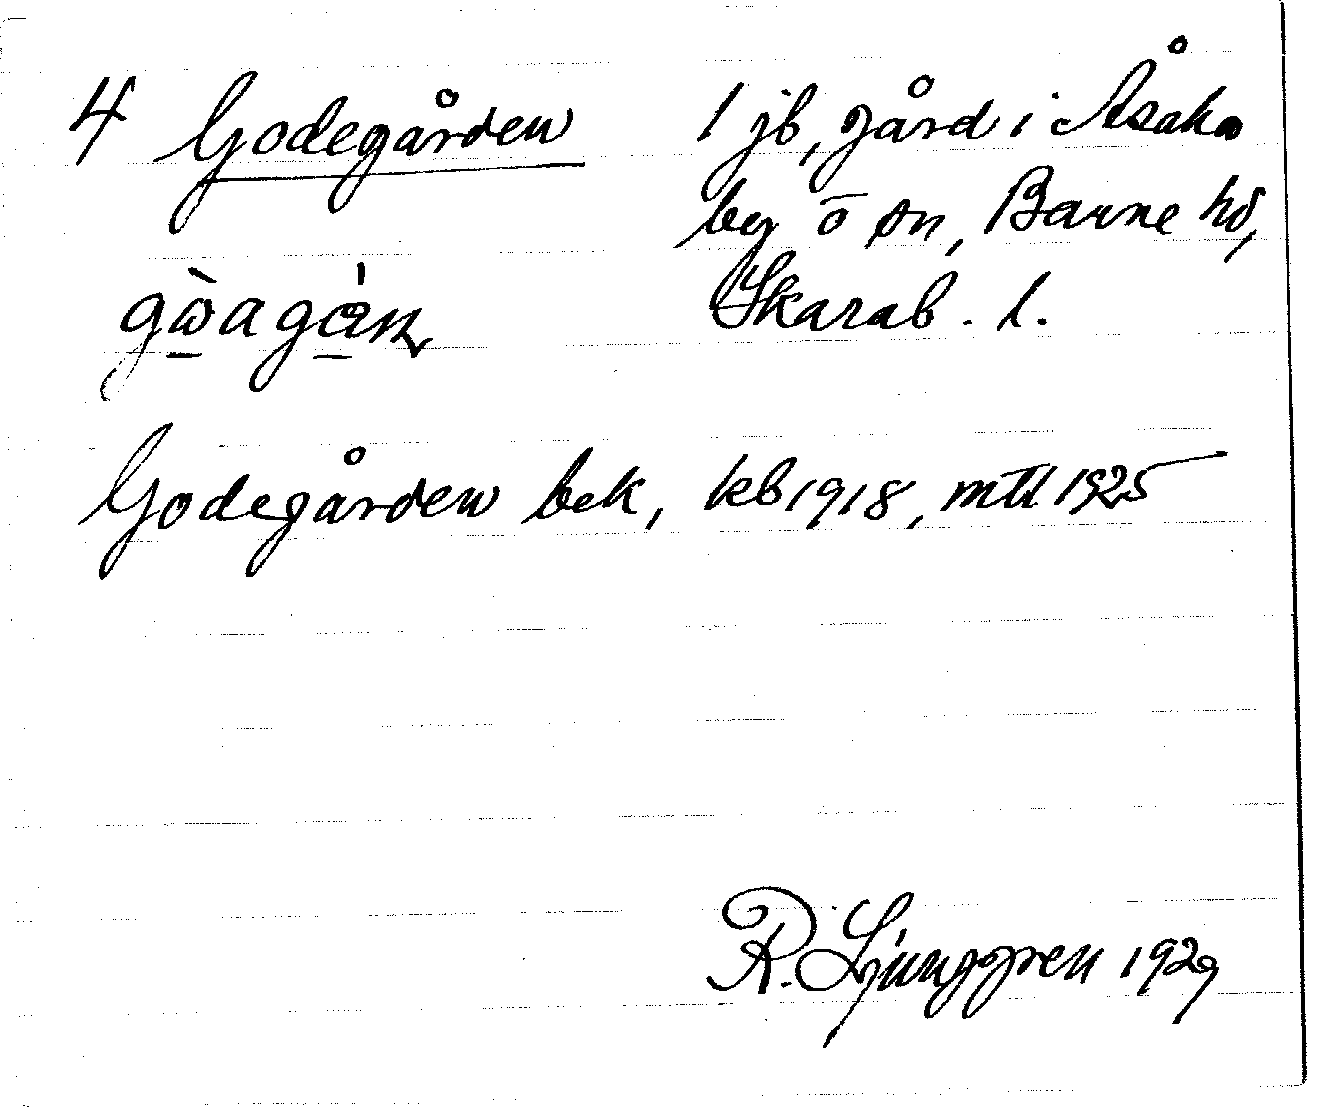 4 Godegården 1 jb, gård i Åsaka
by o sn, Barne hd,
Skarab. l.
Godegården bek, kb 1918, mtl 1925
R. Ljunggren 1929